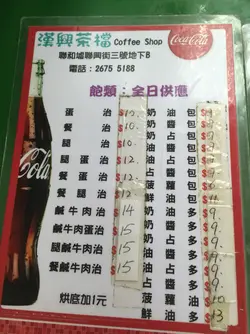 漢興茶檔 Coffee Shop
Coca-Cola
聯和墟聯興街三號地下B
電話：2675 5188
飽類：全日供應
蛋治 $12.
餐治 $10.
腿治 $10.
蛋治 $12.
餐蛋治 $12.
腿蛋治 $12.
餐腿治 $12.
鹹牛肉治 $14
鹹牛肉蛋治 $15
腿鹹牛肉治 $15
餐鹹牛肉治 $15
烘底加1元
奶油包 $9
奶醬包 $9
占醬包
占油包
菠蘿包
鮮油包
奶油多 $9.
奶醬多 $9.
占醬多 $9.
占油多 $9.
菠蘿油 $10
鮮油多 $13